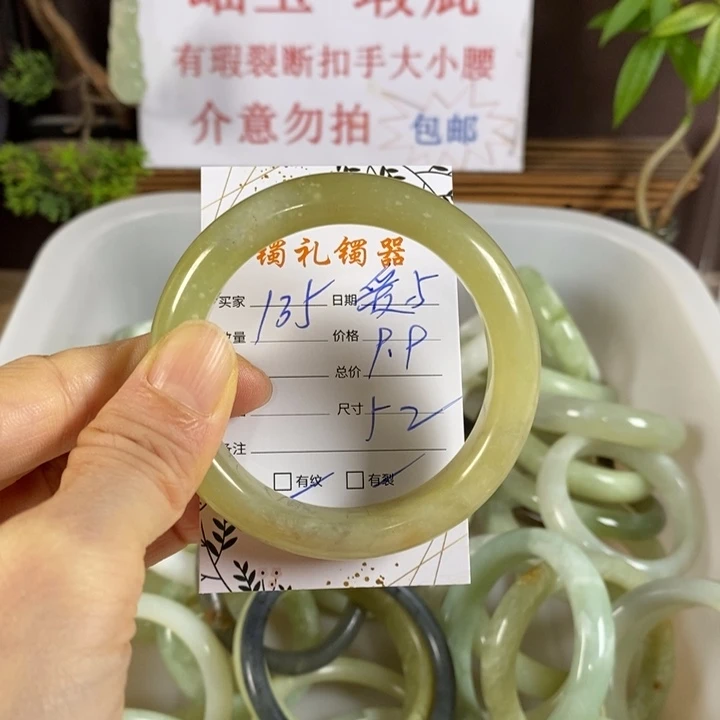 岫玉 瑕疵
有瑕裂断扣手大小腰
介意勿拍 包邮
镯礼镯器
买家 135 日期 5
数量 价格 9.9
总价
尺寸 52
备注
有纹 有裂